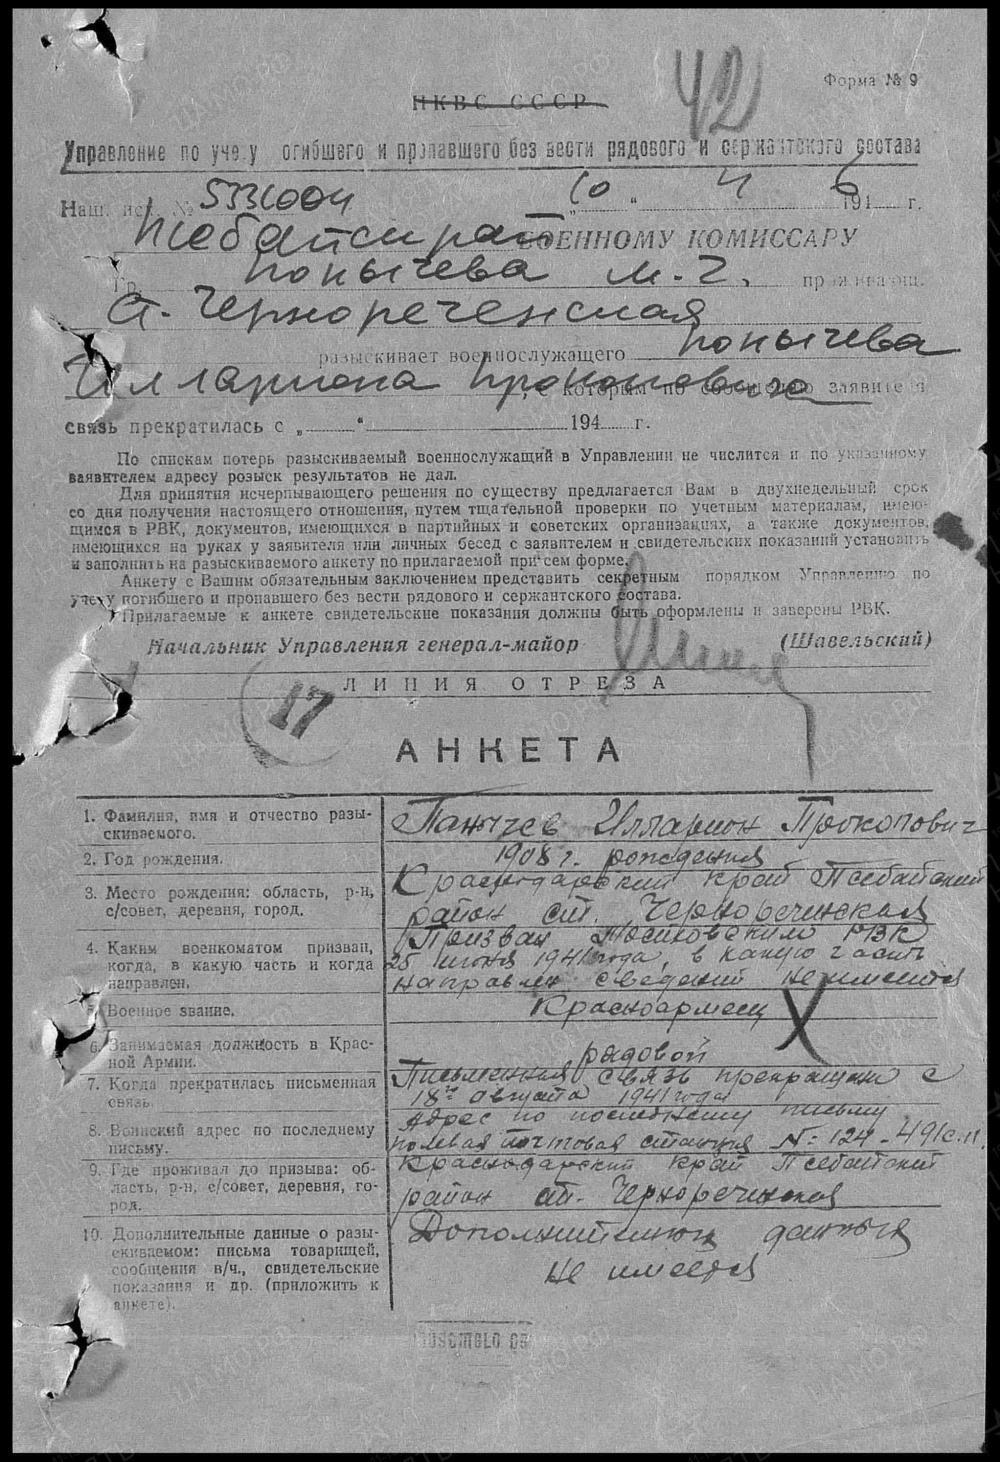 42
Форма № 9
НКВС СССР
Управление по учету погибшего и пропавшего без вести рядового и сержантского состава
Наш исх. № 533100ч „10“ 4 1946 г.
Псебайский ВОЕННОМУ КОМИССАРУ
Гр. Понычева М. Г. прожívающ.
ст. Чернореченская
разыскивает военнослужащего Понычева
Иллариона Прокоповича, с которым по сообщению заявителя
связь прекратилась с „ “ 194 г.
По спискам потерь разыскиваемый военнослужащий в Управлении не числится и по указанному
заявителем адресу розыск результатов не дал.
Для принятия исчерпывающего решения по существу предлагается Вам в двухнедельный срок
со дня получения настоящего отношения, путем тщательной проверки по учетным материалам, имею-
щимся в РВК, документов, имеющихся в партийных и советских организациях, а также документов,
имеющихся на руках у заявителя или личных бесед с заявителем и свидетельских показаний установить
и заполнить на разыскиваемого анкету по прилагаемой при сем форме.
Анкету с Вашим обязательным заключением представить секретным порядком Управлению по
учету погибшего и пропавшего без вести рядового и сержантского состава.
Прилагаемые к анкете свидетельские показания должны быть оформлены и заверены РВК.
Начальник Управления генерал-майор (Шавельский)
ЛИНИЯ ОТРЕЗА
17
АНКЕТА
1. Фамилия, имя и отчество разы-
скиваемого.
Панычев Илларион Прокопович
2. Год рождения.
1908 г. рождения
3. Место рождения: область, р-н,
с/совет, деревня, город.
Краснодарский край Псебайский
район ст. Чернореченская
4. Каким военкоматом призван,
когда, в какую часть и когда
направлен.
Призван РВК
25 июня 1941 года, в какую часть
направлен сведений не имеется
5. Военное звание.
Красноармеец
6. Занимаемая должность в Крас-
ной Армии.
рядовой
7. Когда прекратилась письменная
связь.
Письменная связь прекращена с
18го августа 1941 года
8. Воинский адрес по последнему
письму.
Адрес по последнему письму
полевая почтовая станция №: 124-491с.п.
9. Где проживал до призыва: об-
ласть, р-н, с/совет, деревня, го-
род.
Краснодарский край Псебайский
район ст. Чернореченская
10. Дополнительные данные о разы-
скиваемом: письма товарищей,
сообщения в/ч., свидетельские
показания и др. (приложить к
анкете).
Дополнительных данных
не имеется